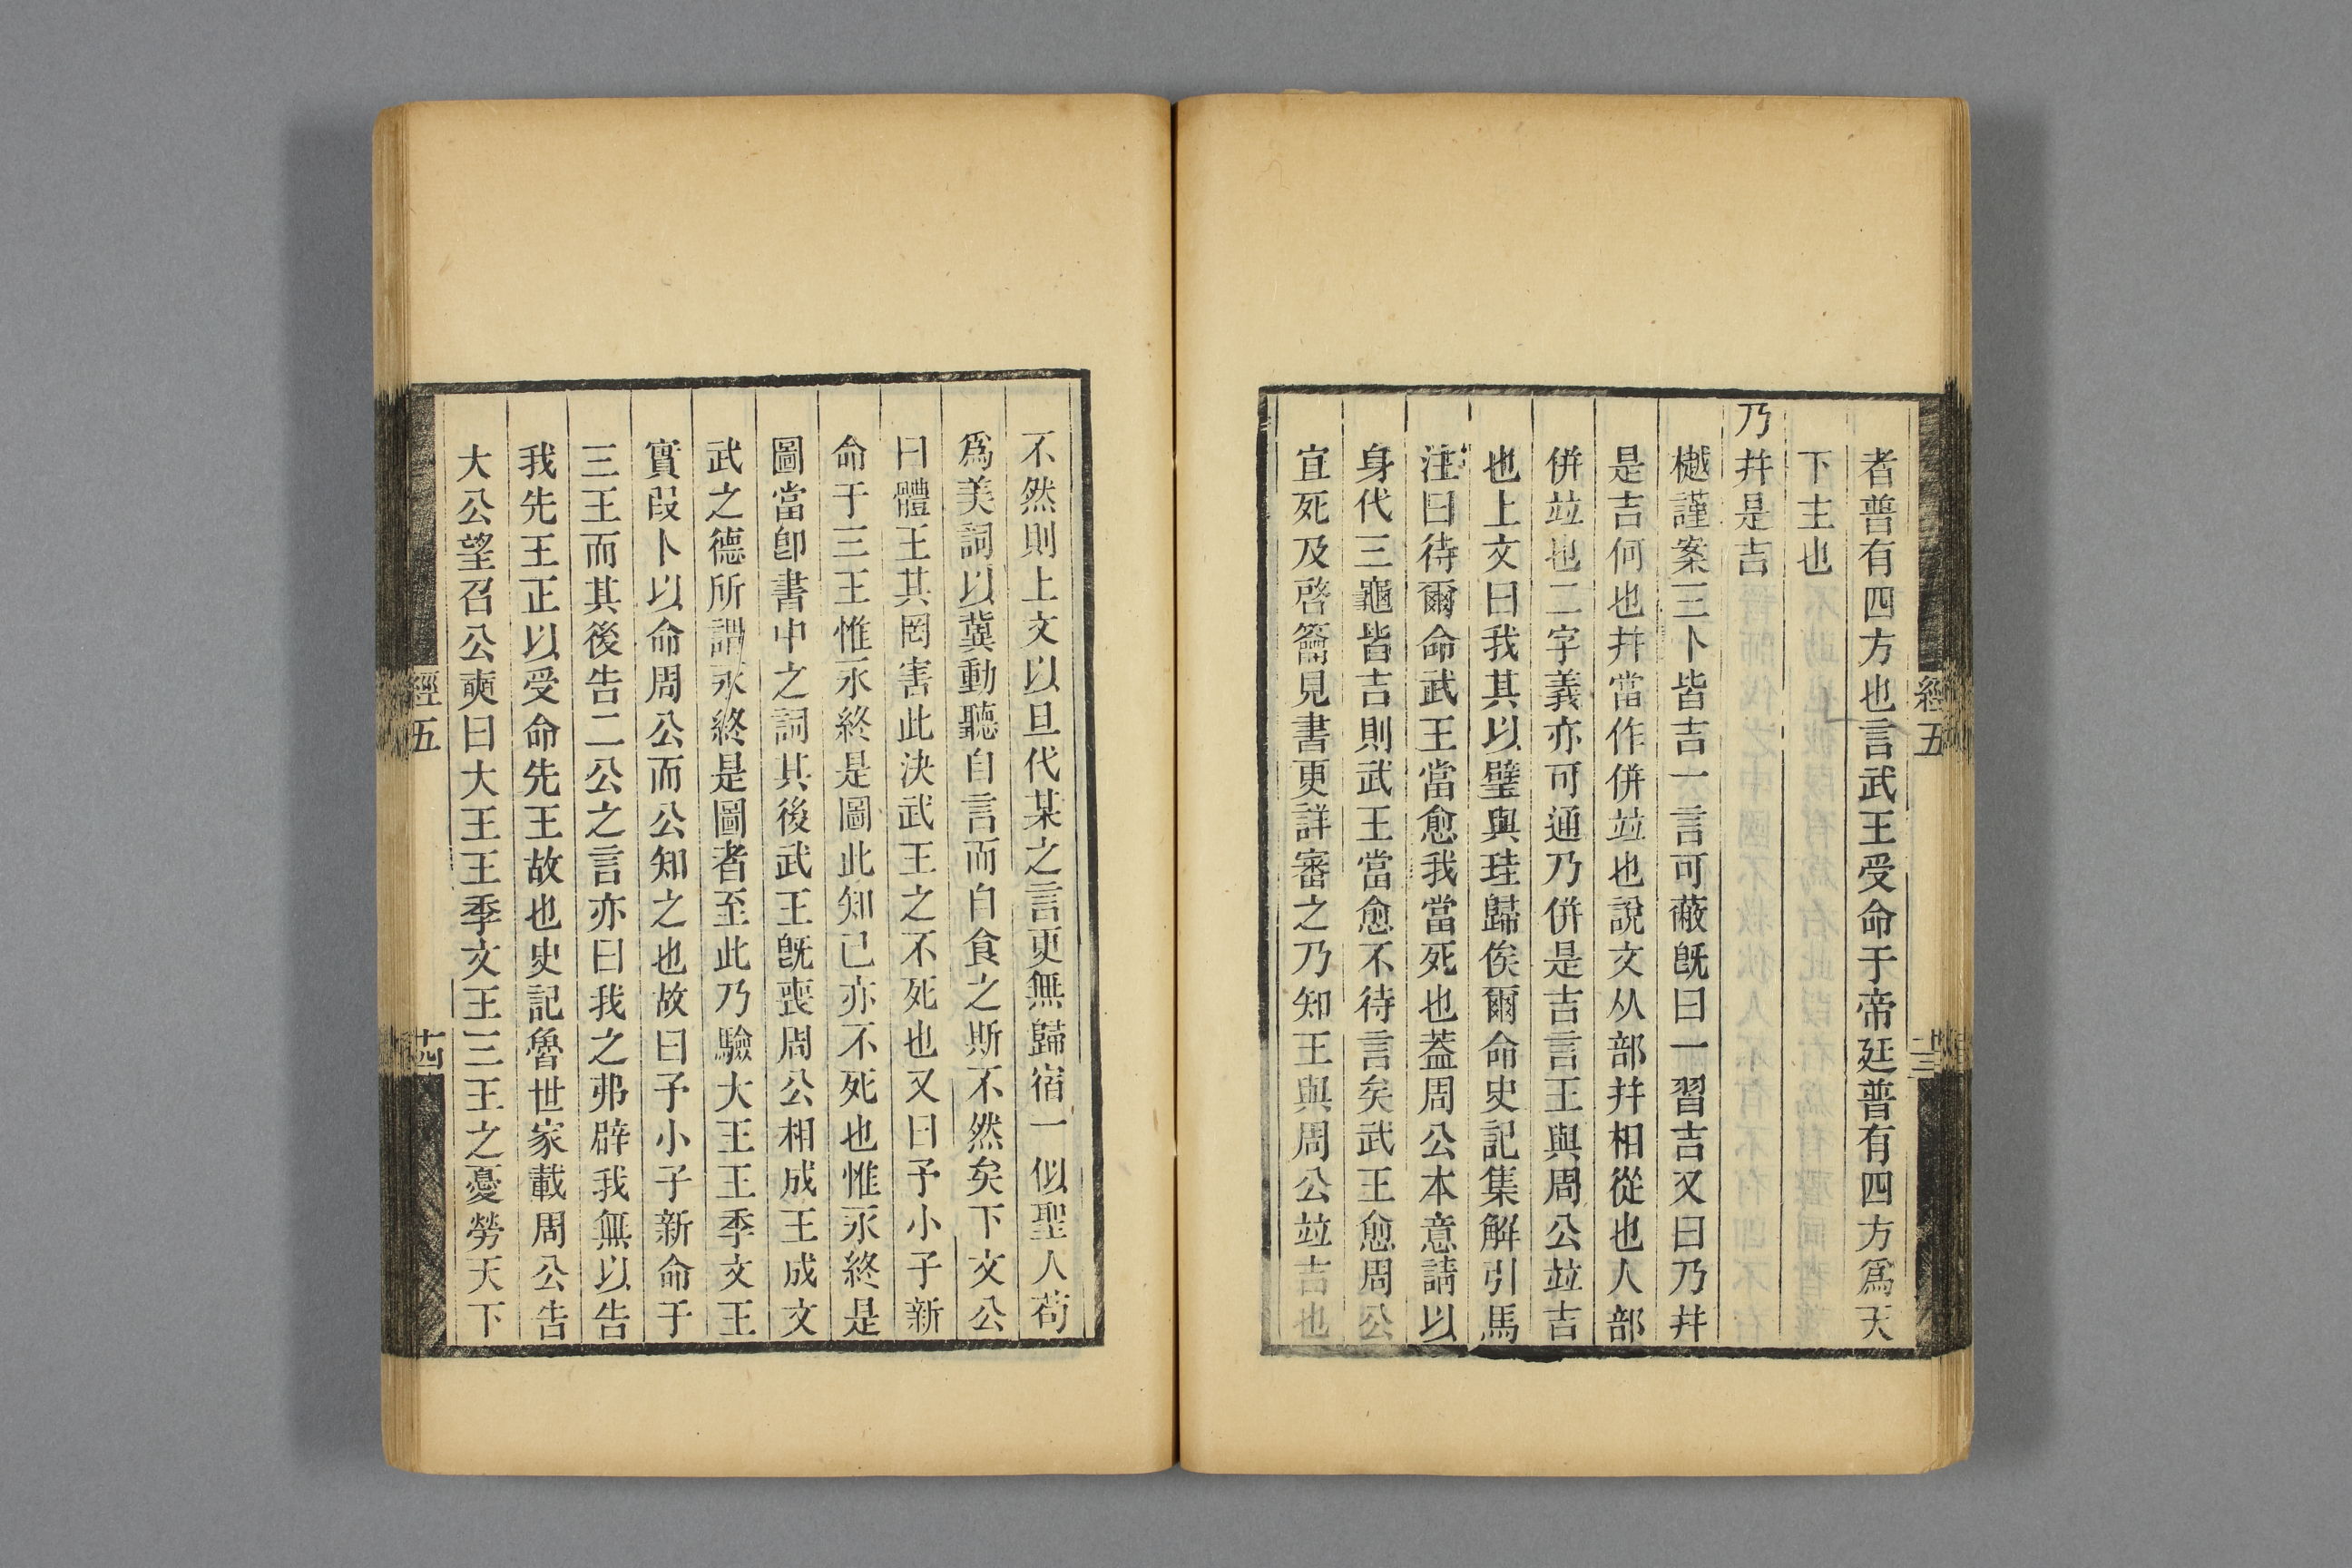 者普有四方也言武王受命于帝廷普有四方爲天
下主也
乃幷是吉
樾謹案三卜皆吉一言可蔽旣曰一習吉又曰乃幷
是吉何也幷當作倂竝也說文从部幷相從也人部
倂竝也二字義亦可通乃倂是吉言王與周公竝吉
也上文曰我其以璧與珪歸俟爾命史記集解引馬
注曰待爾命武王當愈我當死也蓋周公本意請以
身代三龜皆吉則武王當愈不待言矣武王愈周公
宜死及啓籥見書更詳審之乃知王與周公竝吉也
經五
不然則上文以旦代某之言更無歸宿一似聖人苟
爲美詞以冀動聽自言而自食之斯不然矣下文公
曰體王其罔害此決武王之不死也又曰予小子新
命于三王惟永終是圖此知己亦不死也惟永終是
圖當卽書中之詞其後武王旣喪周公相成王成文
武之德所謂永終是圖者至此乃驗大王王季文王
實叚卜以命周公而公知之也故曰予小子新命于
三王而其後告二公之言亦曰我之弗辟我無以告
我先王正以受命先王故也史記魯世家載周公告
大公望召公奭曰大王王季文王三王之憂勞天下
經五
十四